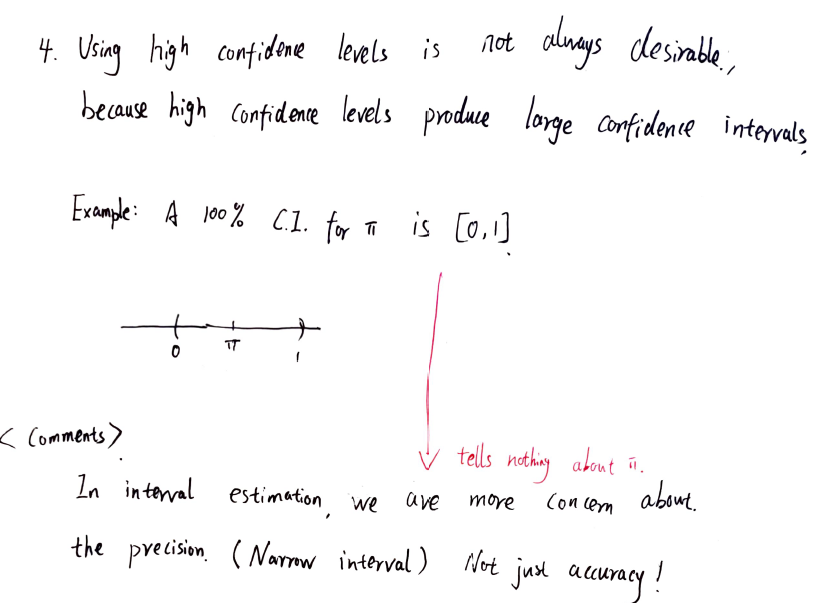 4. Using high confidence levels is not always desirable,
because high confidence levels produce large confidence intervals.
Example: A 100% C.I. for π is [0,1].
0 π 1
< Comments >.
tells nothing about π.
In interval estimation, we are more concern about.
the precision. (Narrow interval) Not just accuracy!